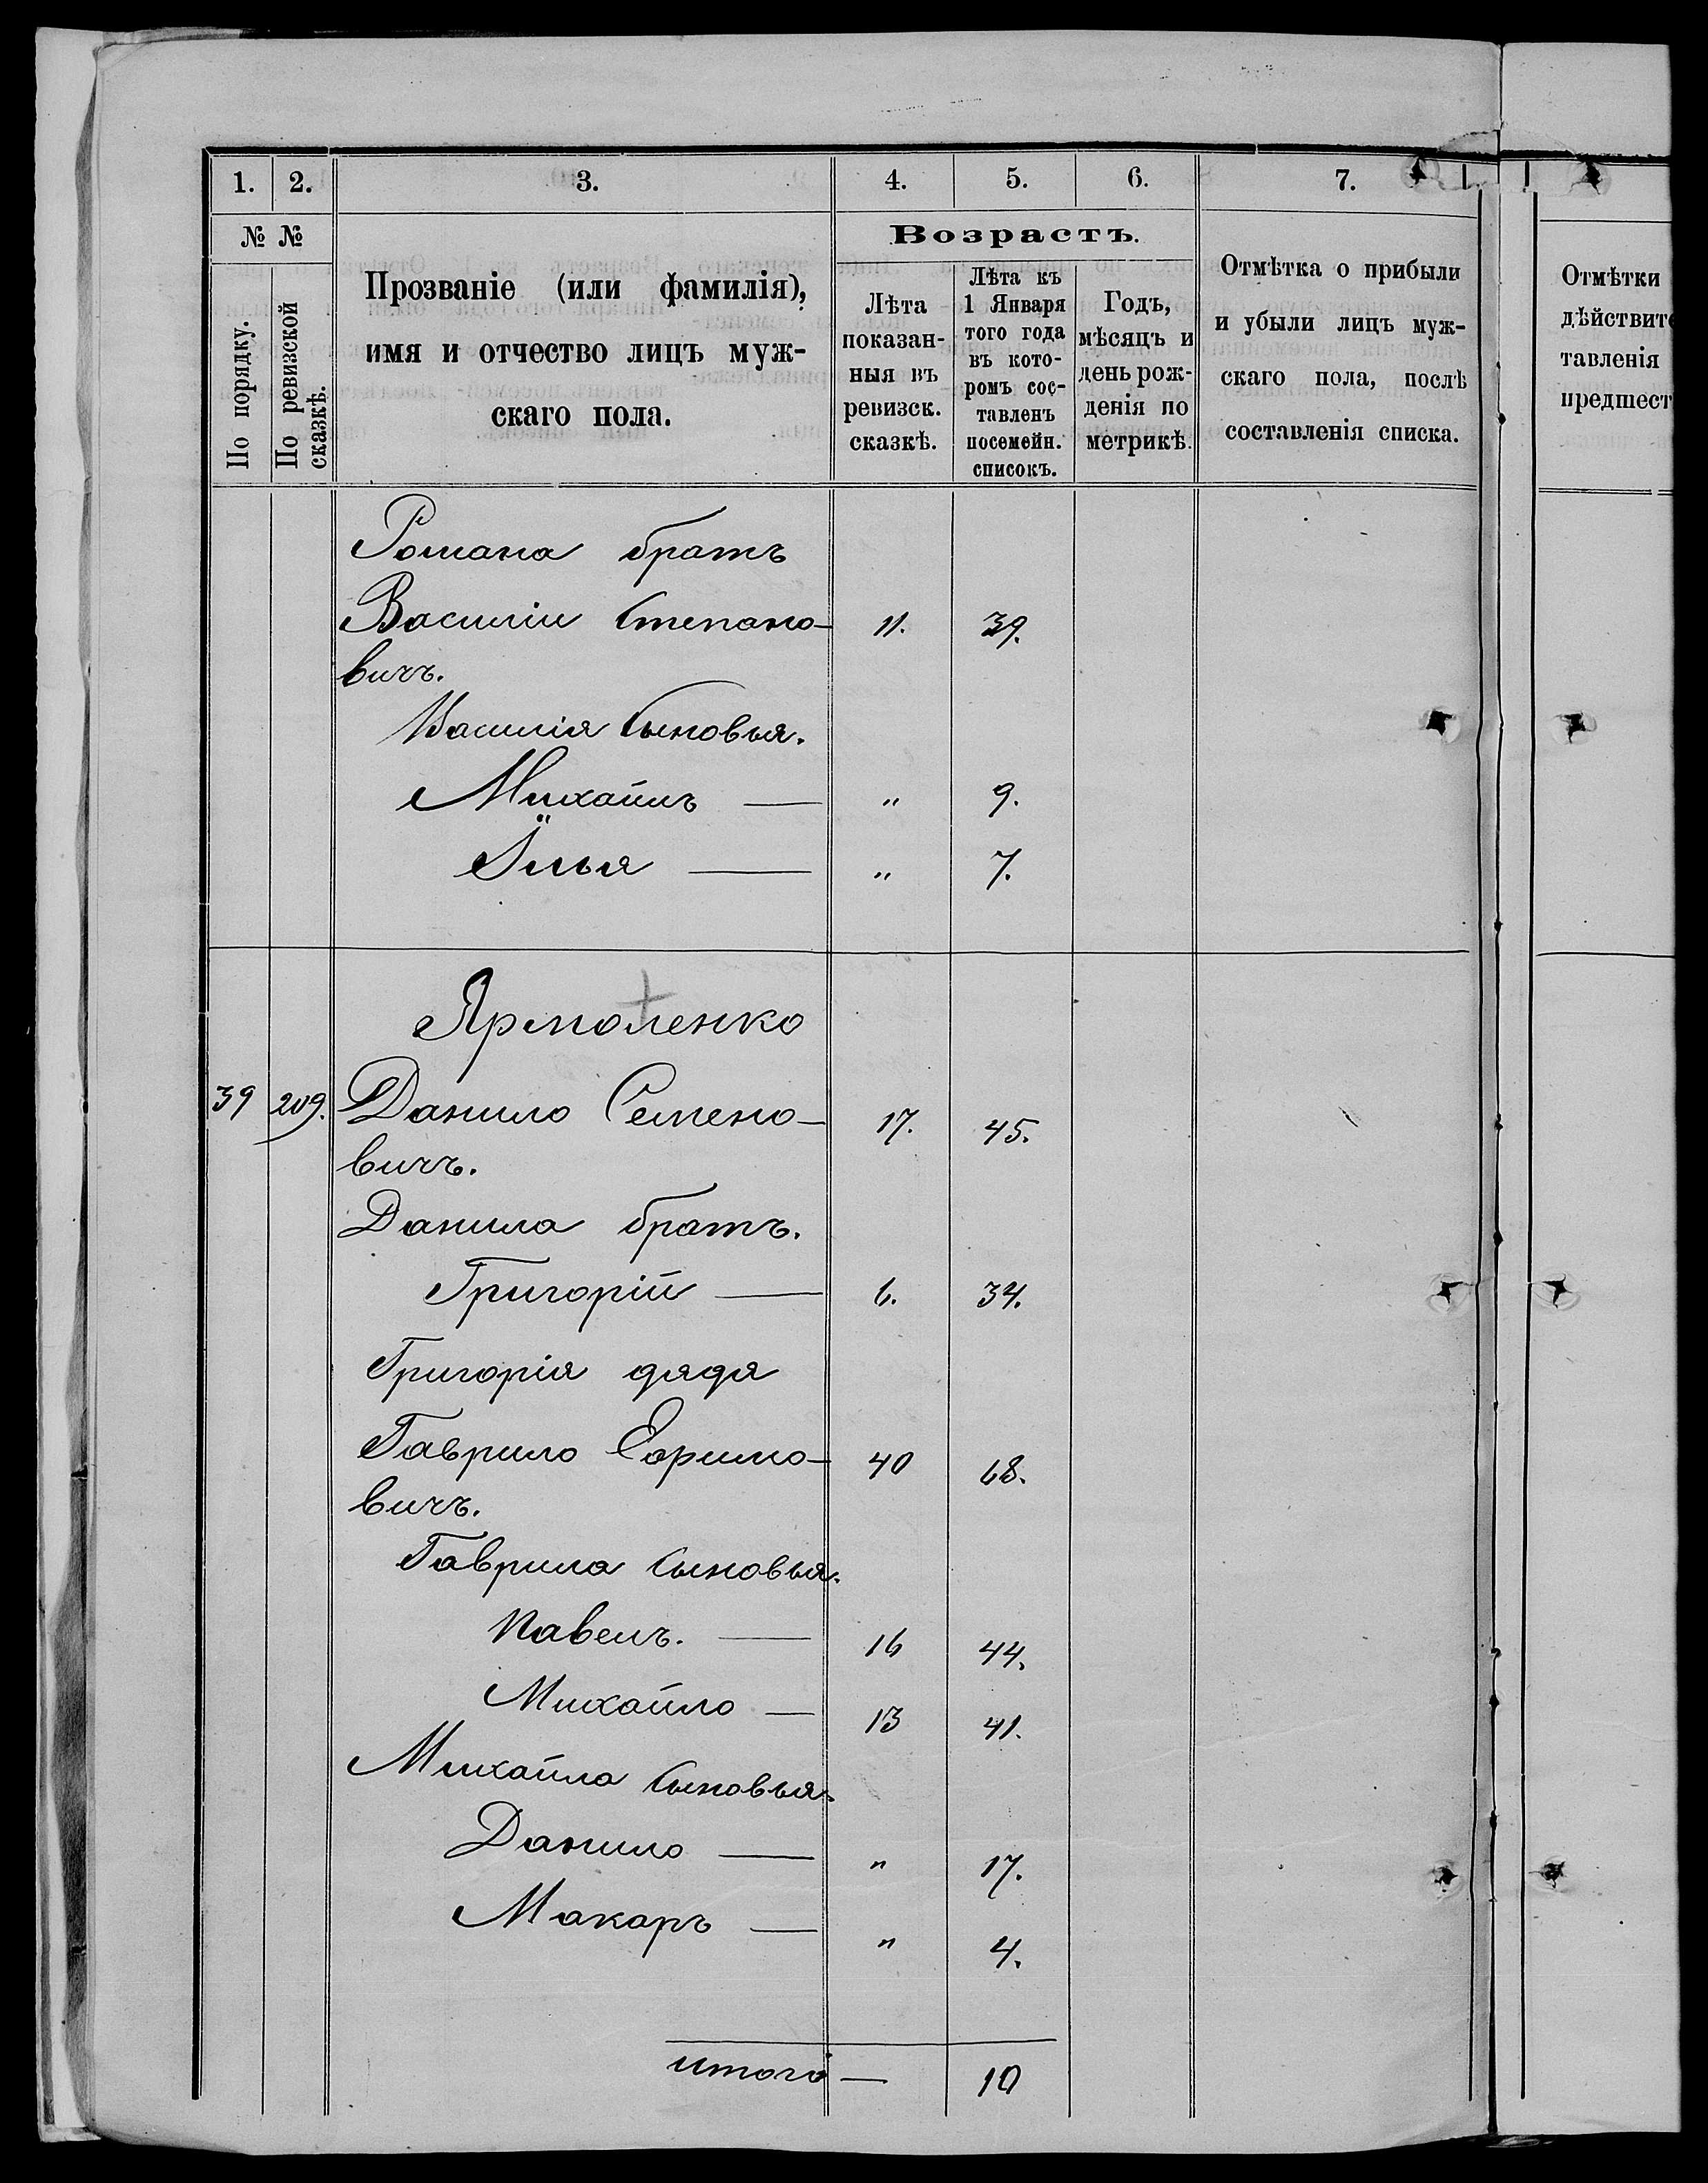 1. 2. 3. 4. 5. 6. 7.
№ №
По порядку.
По ревизской сказкѣ.
Прозваніе (или фамилія),
имя и отчество лицъ муж-
скаго пола.
Возрастъ.
Лѣта
показан-
ныя въ
ревизск.
сказкѣ.
Лѣта къ
1 Января
того года
въ кото-
ромъ сос-
тавленъ
посемейн.
списокъ.
Годъ,
мѣсяцъ и
день рож-
денія по
метрикѣ.
Отмѣтка о прибыли
и убыли лицъ муж-
скаго пола, послѣ
составленія списка.
Отмѣтки
дѣйствите
тавленія
предшест
Романа братъ
Василій Степано- 11. 39.
вичъ.
Василія сыновья.
Михаилъ — " 9.
Илья — " 7.
Ярмоленко
39 209. Данило Семено- 17. 45.
вичъ.
Данила братъ.
Григорій — 6. 34.
Григорія дядя
Гаврило Ефимо- 40 68.
вичъ.
Гаврила сыновья.
Павелъ. — 16 44.
Михайло — 13 41.
Михайла сыновья.
Данило — " 17.
Макаръ — " 4.
итого — 10